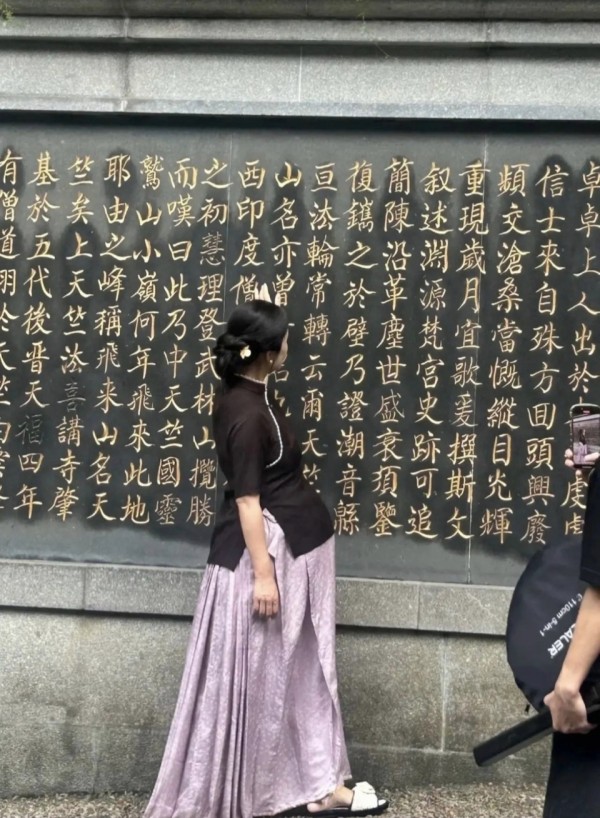 卓卓上人出於
信士來自殊方囬頭興廢
頻交滄桑當慨縱目光輝
重現歲月宜歌爰撰斯文
叙述淵源梵宮史跡可追
簡陳沿革塵世盛衰須鑒
復鐫之於壁乃證潮音縣
亘法輪常轉云爾天竺
山名亦曾
西印度僧
之初慧理登武林山攬勝
而嘆曰此乃中天竺國靈
鷲山小嶺何年飛來此地
耶由之峰稱飛來山名天
竺矣上天竺法善講寺肇
基於五代後晋天福四年
有僧道翊於天竺白雲
110cm 8-in-1